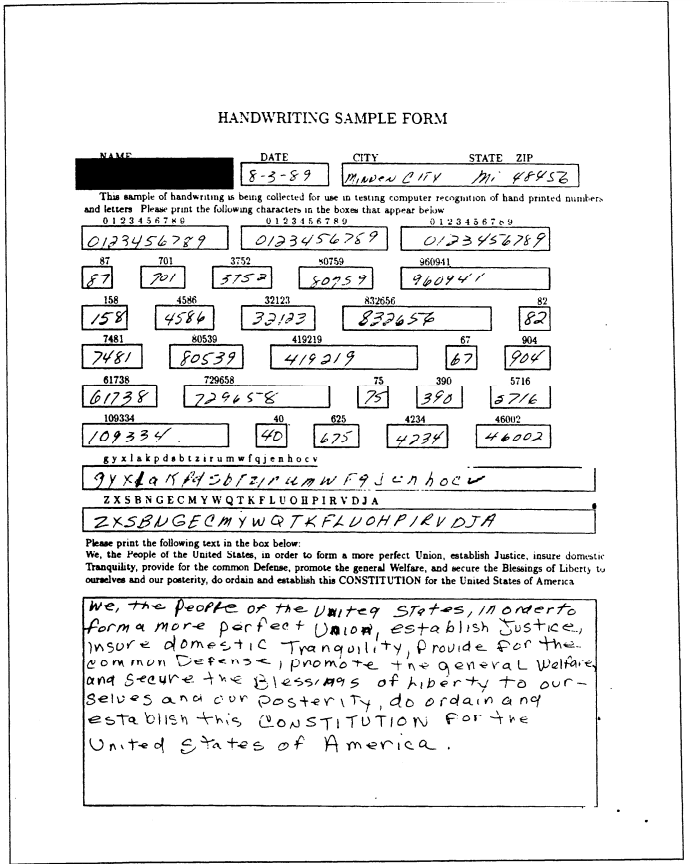 HANDWRITING SAMPLE FORM
NAME DATE CITY STATE ZIP
8-3-89 MINDEN CITY Mi 48456
This sample of handwriting is being collected for use in testing computer recognition of hand printed numbers
and letters Please print the following characters in the boxes that appear below
0 1 2 3 4 5 6 7 8 9 0 1 2 3 4 5 6 7 8 9 0 1 2 3 4 5 6 7 8 9
0123456789 0123456789 0123456789
87 701 3752 80759 960941
87 701 3752 80759 960941
158 4586 32123 832656 82
158 4586 32123 832656 82
7481 80539 419219 67 904
7481 80539 419219 67 904
61738 729658 75 390 5716
61738 729658 75 390 5716
109334 40 625 4234 46002
109334 40 675 4234 46002
gyxlakpdsbtzirumwfqjenhocv
gyxlaKpdsbtzirumwFqjenhocv
ZXSBNGECMYWQTKFLUOHPIRVDJA
ZXSBNGECMYWQTKFLUOHPIRVDJA
Please print the following text in the box below:
We, the People of the United States, in order to form a more perfect Union, establish Justice, insure domestic
Tranquility, provide for the common Defense, promote the general Welfare, and secure the Blessings of Liberty to
ourselves and our posterity, do ordain and establish this CONSTITUTION for the United States of America
We, the People of the United States, in order to
form a more perfect Union, establish Justice,
insure domestic Tranquility, Provide For the
common Defense, promote the general Welfare,
and Secure the Blessings of Liberty to our-
selves and our posterity, do ordain and
establish this CONSTITUTION For the
United States of America.